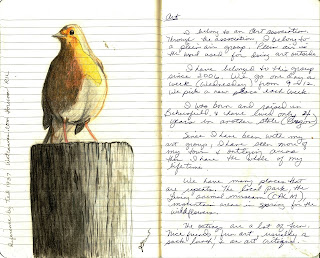 Art
I belong to an art association
through the association, I belong to
a plein air group. Plein air is
the word used for doing art outside
I have belonged to this group
since 2006. We go one day a
week (Wednesday) from 9-12.
We pick a new place each week
I was born and raised in
Bakersfield & have lived only
years in another state (Oregon)
Since I have been with my
art group, I have seen more of
my town & outlying areas
than I have the whole of my
lifetime.
We have many places that
are repeats. The local park, the
living animal museum (CALM),
mountain areas in spring for the
wildflowers.
The outings are a lot of fun.
Nice friends, fun art, usually a
sack lunch, & an art critique.